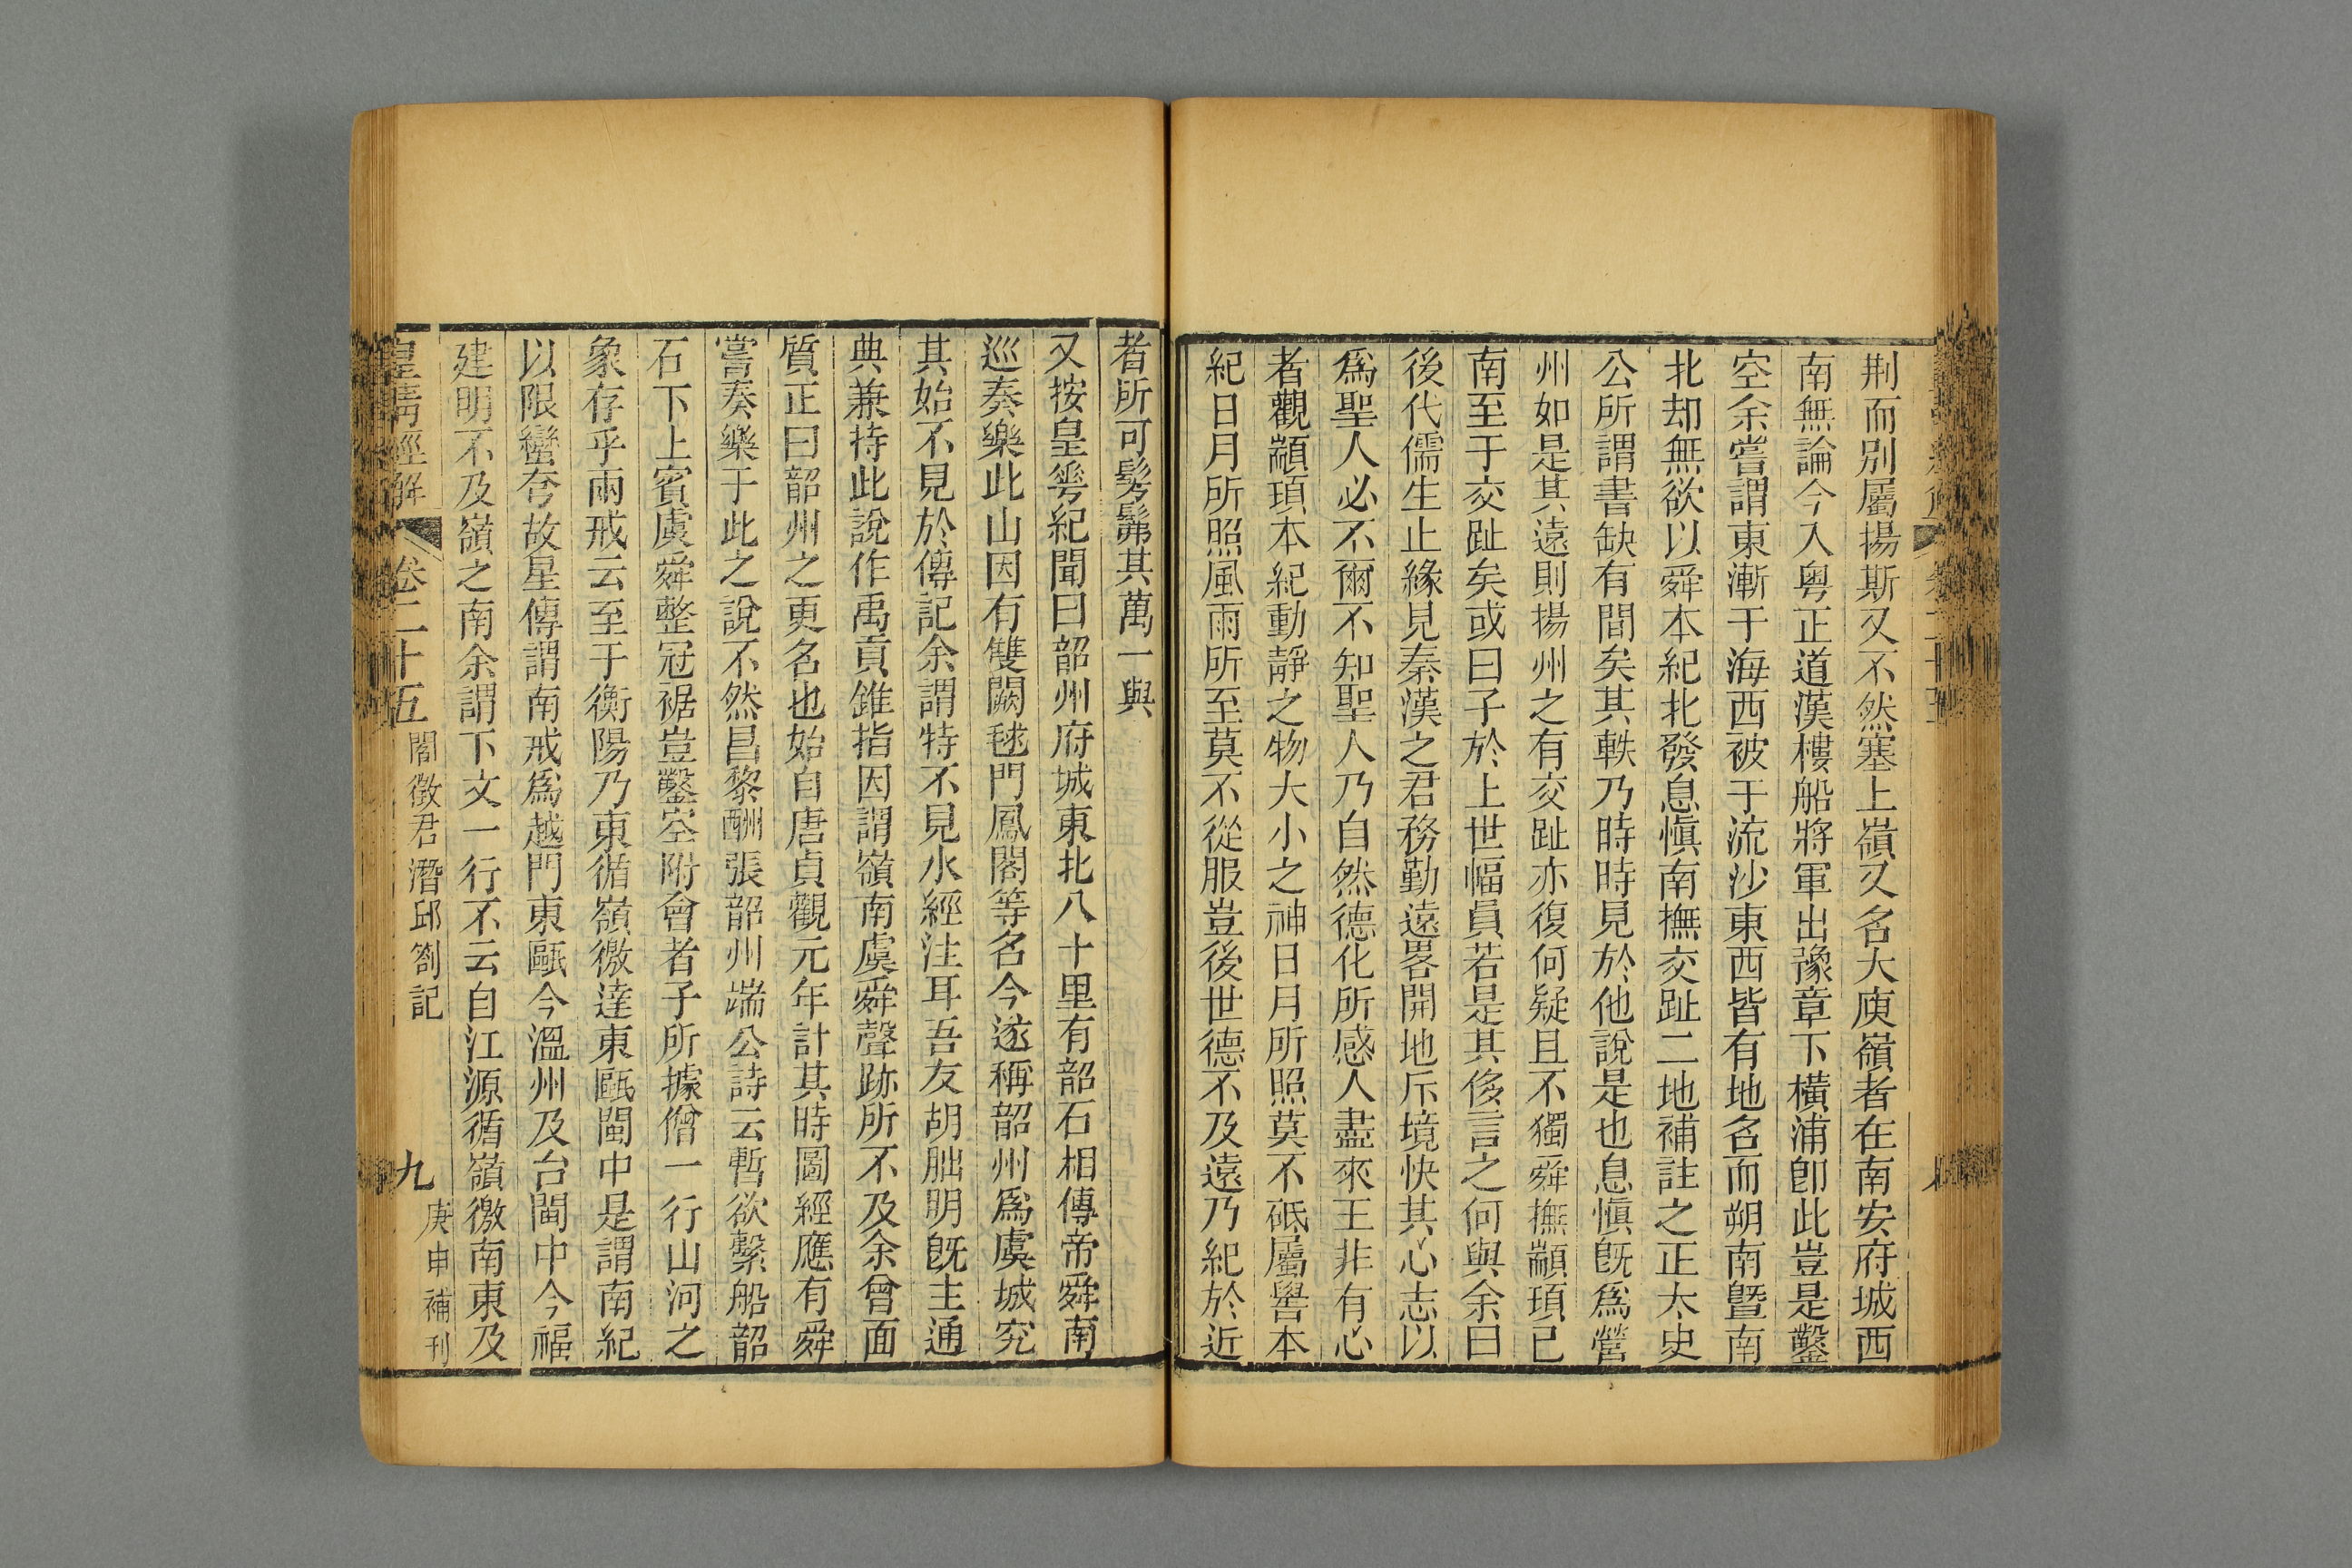 荆而別屬揚斯又不然塞上嶺又名大庾嶺者在南安府城西
南無論今入粤正道漢樓船將軍出豫章下橫浦卽此豈是鑿
空余嘗謂東漸于海西被于流沙東西皆有地名而朔南曁南
北却無欲以舜本紀北發息愼南撫交趾二地補註之正太史
公所謂書缺有間矣其軼乃時時見於他說是也息愼旣爲營
州如是其遠則揚州之有交趾亦復何疑且不獨舜撫顓頊已
南至于交趾矣或曰子於上世幅員若是其侈言之何與余曰
後代儒生止緣見秦漢之君務勤遠畧開地斥境快其心志以
爲聖人必不爾不知聖人乃自然德化所感人盡來王非有心
者觀顓頊本紀動靜之物大小之神日月所照莫不砥屬嚳本
紀日月所照風雨所至莫不從服豈後世德不及遠乃紀於近
者所可髣髴其萬一與
又按皇舉紀聞曰韶州府城東北八十里有韶石相傳帝舜南
巡奏樂此山因有雙闕毬門鳳閣等名今遂稱韶州爲虞城究
其始不見於傳記余謂特不見水經注耳吾友胡朏明旣主通
典兼持此說作禹貢錐指因謂嶺南虞舜聲跡所不及余曾面
質正曰韶州之更名也始自唐貞觀元年計其時圖經應有舜
嘗奏樂于此之說不然昌黎酬張韶州端公詩云暫欲繫船韶
石下上賓虞舜整冠裾豈鑿空附會者子所據僧一行山河之
象存乎兩戒云至于衡陽乃東循嶺徼達東甌閩中是謂南紀
以限蠻夸故星傳謂南戒爲越門東甌今溫州及台閩中今福
建明不及嶺之南余謂下文一行不云自江源循嶺徼南東及
皇清經解 卷二十五 閻徵君潛邱劄記 九 庚申補刊